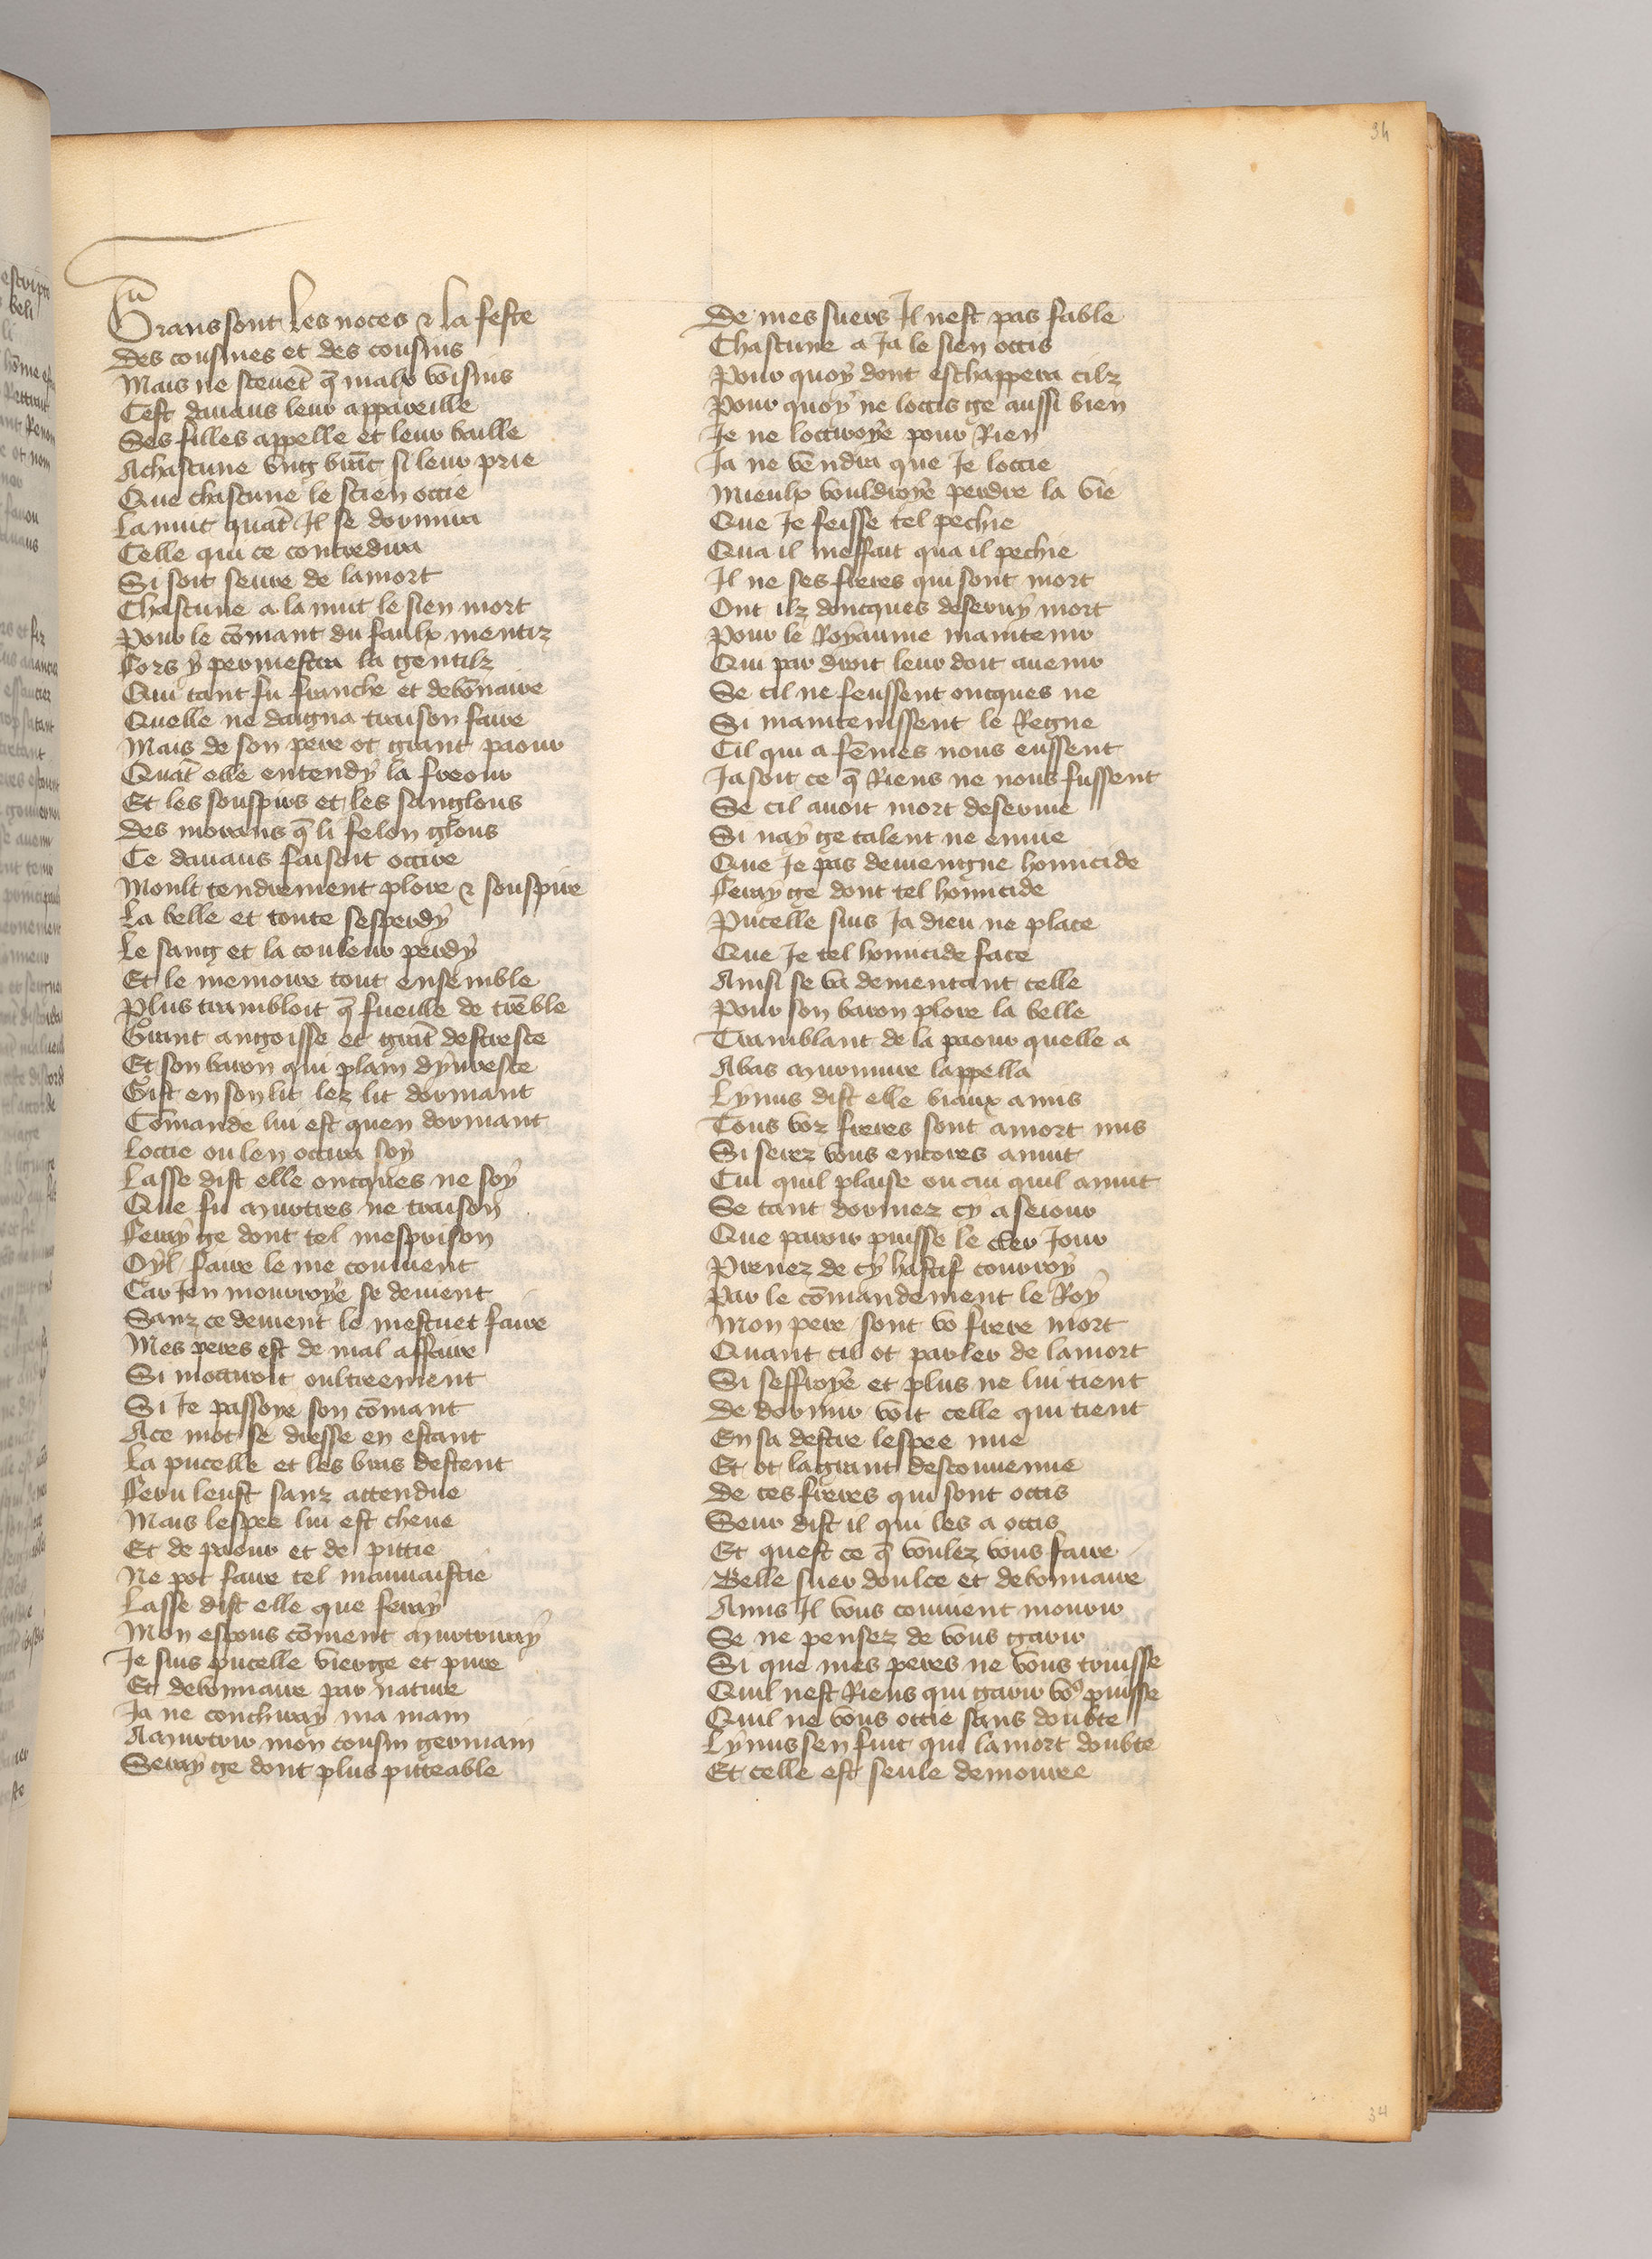 34
Grans sont les noces & la feste
Des cousines et des cousins
Mais ne sceuēt q̄ malx voisins
Cest danaus leur appareille
Ses filles appelle et leur baille
A chascune vng brāt si leur prie
Que chascune le scien occie
La nuit quāt Il se dormira
Celle qui ce contredira
Si soit seure de la mort
Chascune a la nuit le sien mort
Pour le cōmant du faulx mentiz
Fors ypermestra la gentilz
Qui tant fu franche et debōnaire
Quelle ne daigna traison faire
Mais de son pere ot grant paour
Quāt elle entendy la freour
Et les souspirs et les sanglous
Des morans q̄ li felon glous
Ce danaus faisoit occire
Moult tendrement plore & souspire
La belle et toute sesperdy
Le sang et la couleur perdy
Et le memoire tout ensemble
Plus trambloit q̄ fueille de trēble
Grant angoisse et grāt destresce
Et son baron qui plain dyuresce
Gist en son lit lez lit dormant
Cōmande lui est quen dormant
Loccie ou len occira soy
Lasse dist elle oncques ne soy
Que fu murtres ne traison
Feray ge dont tel mesprison
Oyl faire le me conuient
Car Jen mourroye se deuient
Sanz ce deuient le mestuet faire
Mes peres est de mal affaire
Si mocciroit oultreement
Si Je passoye son cōmant
A ce mot se dresse en estant
La pucelle et les bras destent
Feru leust sanz attendue
Mais lespee lui est cheue
Et de paour et de pittie
Ne pot faire tel mauuaistie
Lasse dist elle que feray
Mon espous cōment murtriray
Je suis pucelle vierge et pure
Et debonnaire par nature
Ja ne conchiray ma main
A murtrir mon cousin germain
Seray ge dont plus pitteable
De mes suers Il nest pas fable
Chascune a Ja le sien occis
Pour quoy dont eschappera cilz
Pour quoy ne loccis ge aussi bien
Je ne locciroye pour Rien
Ja ne vēndra que Je loccie
Mieulx vouldroye perdre la vie
Que Je feisse tel pechie
Qua il meffait qua il pechie
Il ne ses freres qui sont mort
Ont ilz doncques deseruy mort
Pour le Royaume maintenir
Qui par droit leur doit auenir
Se cil ne feussent oncques ne
Si maintenissent le Regne
Cil qui a fēmes nous eussent
Ja soit ce q̄ Riens ne nous fussent
Se cil auoit mort deseruie
Si nay ge talent ne enuie
Que Je pas deuiengne homicide
Feray ge dont tel homicide
Pucelle suis Ja dieu ne place
Que Je tel homicide face
Ainsi se va dementant celle
Pour son baron plore la belle
Tramblant de la paour quelle a
A bas murmure lappella
Lynus dist elle biaux amis
Tous voz freres sont a mort mis
Si serez vous encores anuit
Cui quil plaise ou cui quil anuit
Se tant dormez cy a seiour
Que paroir puisse le cler Jour
Prenez de cy hastif conrroy
Par le cōmandement le Roy
Mon pere sont vo frere mort
Quant cil ot parler de la mort
Si seffroye et plus ne lui tient
De dormir voit celle qui tient
En sa destre lespee nue
Et ot la grant desconuenue
De ces freres qui sont occis
Seur dist il qui les a occis
Et quest ce q̄ voulez vous faire
Belle suer doulce et debonnaire
Amis Il vous conuient mourir
Se ne pensez de vous garir
Si que mes peres ne vous truisse
Quil nest Riens qui garir vo⁹ puisse
Quil ne vous occie sans doubte
Lynus sen fuit qui la mort doubte
Et celle est seule demouree
34